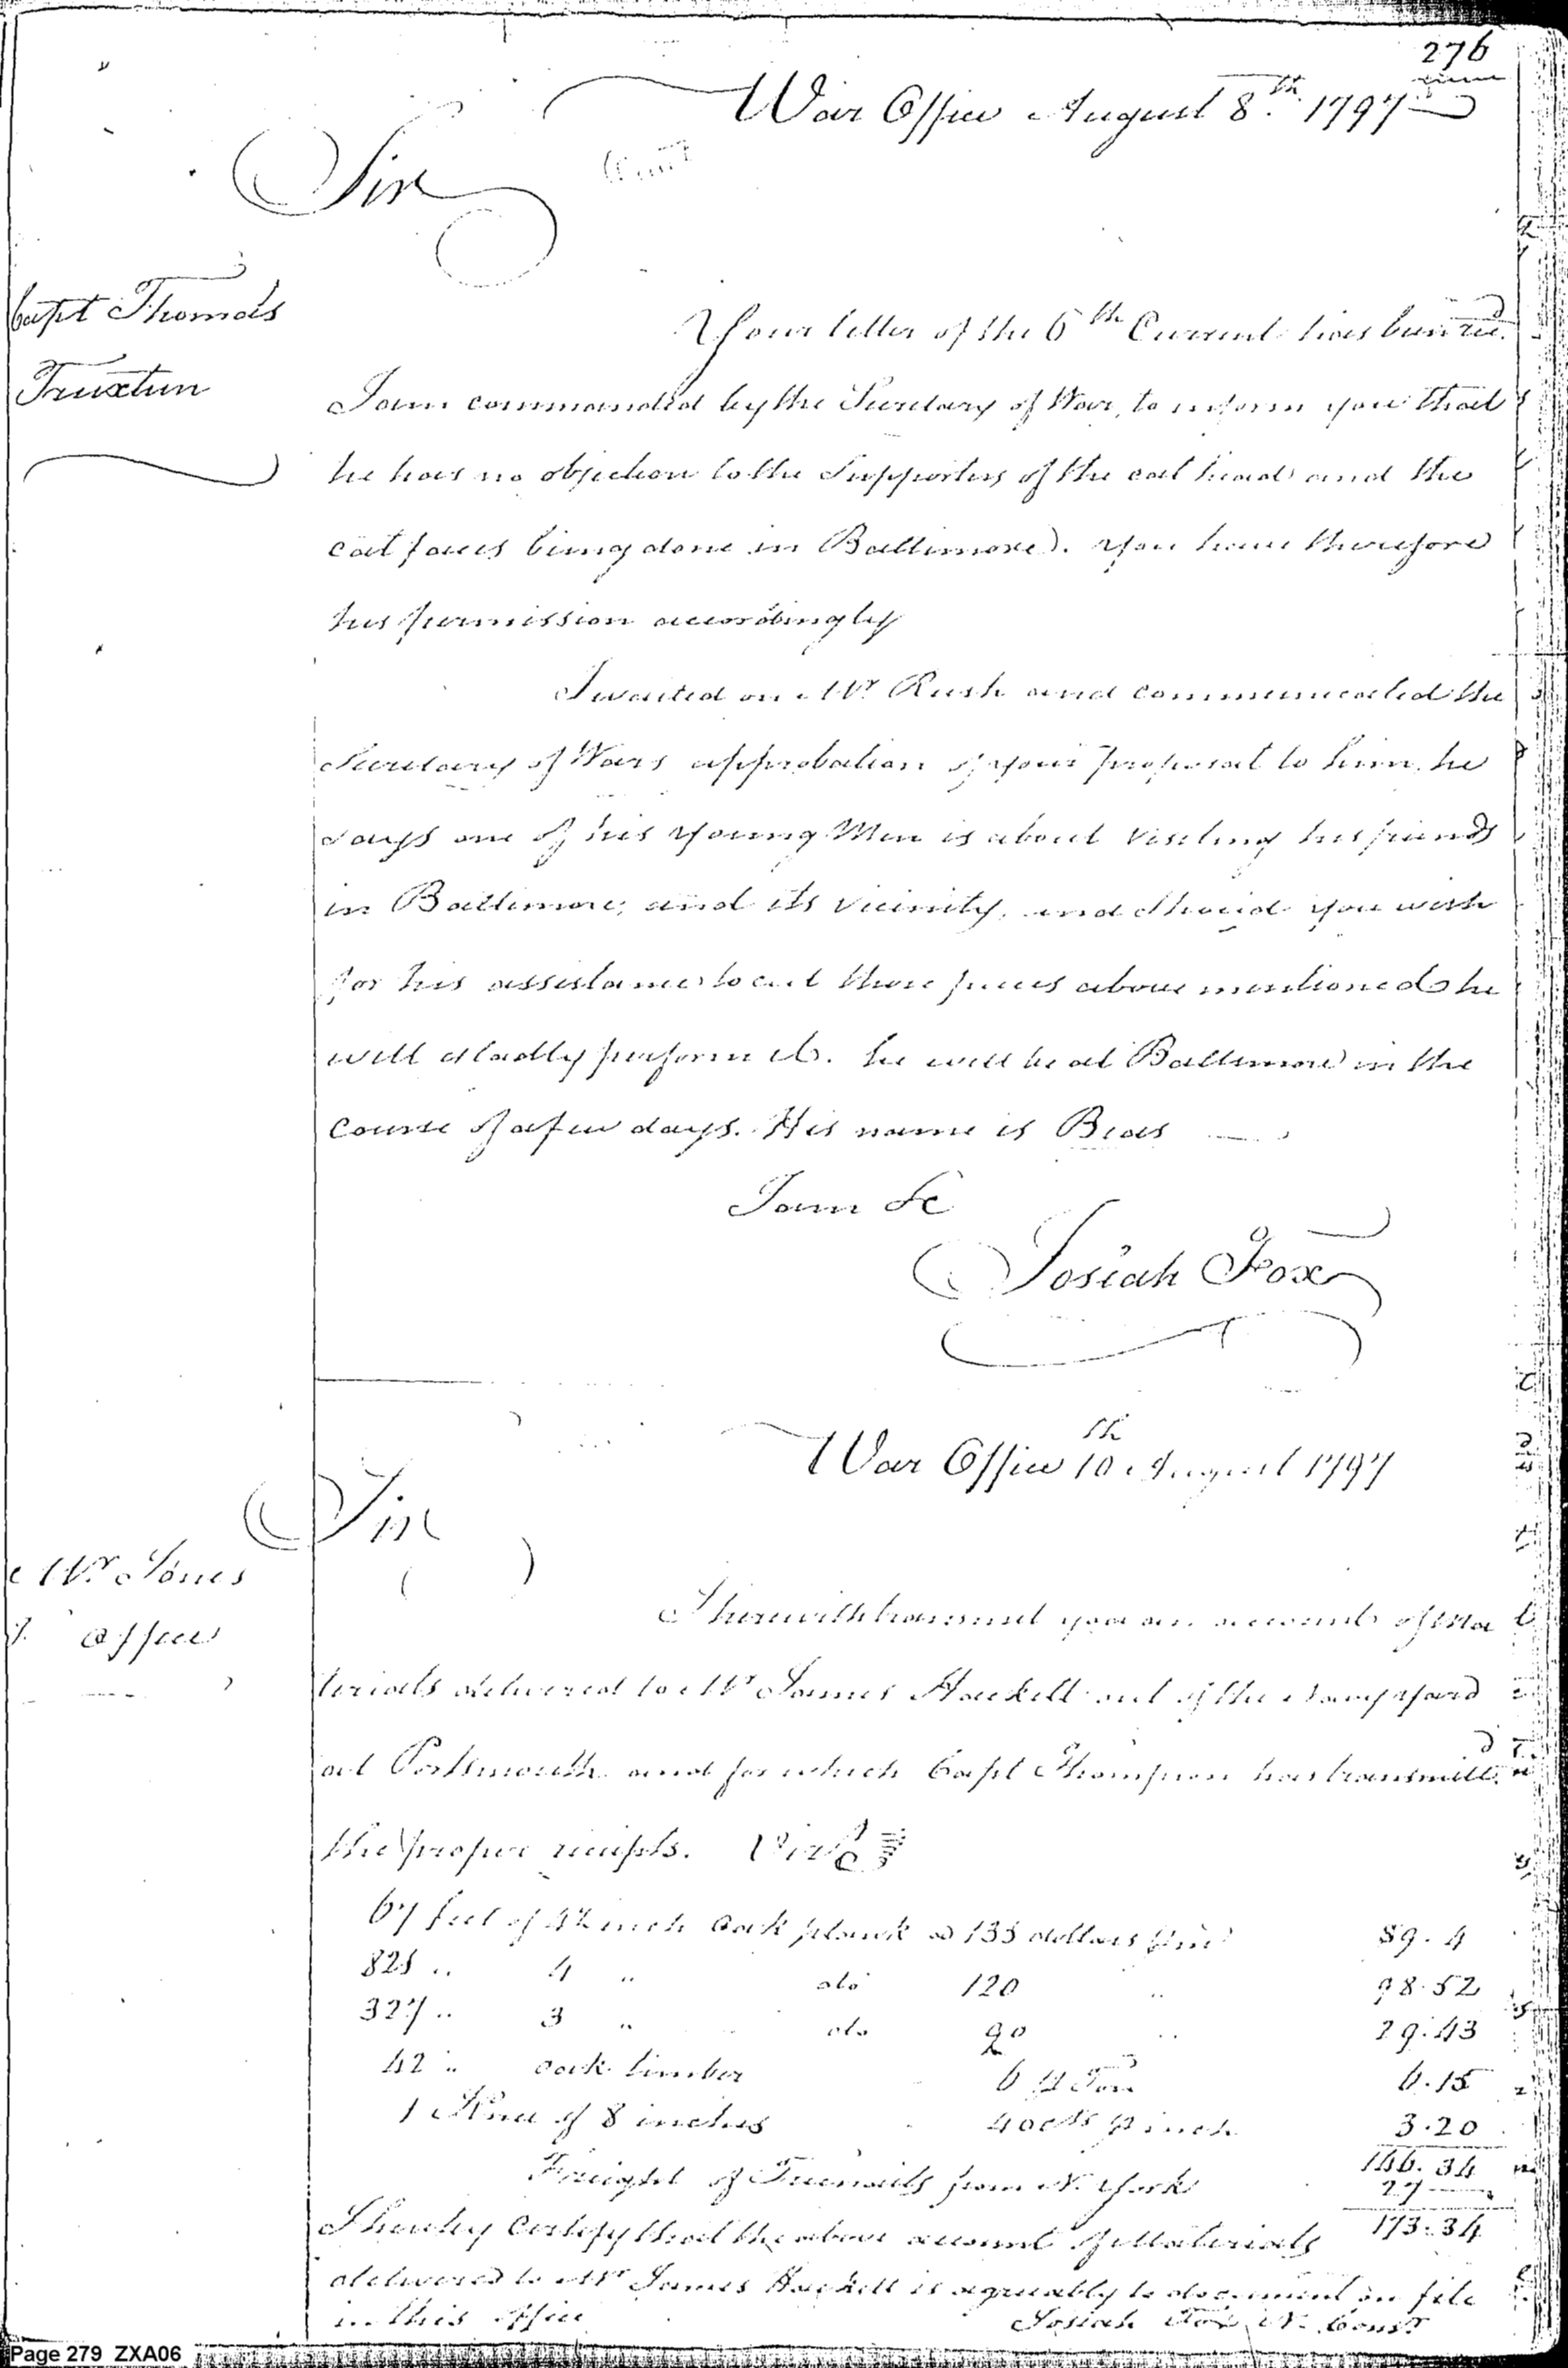 276
War Office August 8th. 1797
Sir
Capt Thomas
Truxtun
Your letter of the 6th Current has been recd.
I am commanded by the Secretary of War, to inform you that
he has no objection to the Supporters of the cat head and the
cat faces being done in Baltimore. you have therefore
his permission accordingly
I waited on Mr. Rush and communicated the
Secretary of Wars approbation of your proposal to him, he
says one of his Young Men is about visiting his friends
in Baltimore, and its vicinity, and should you wish
for his assistance to cut those pieces above mentioned he
will gladly perform it. he will be at Baltimore in the
Course of a few days. His name is Beas
I am &c
Josiah Fox
War Office 10th August 1797
Sir
Mr. Jones
office
I herewith transmit you an account of Ma
terials delivered to Mr James Hackett out of the Navy Yard
at Portsmouth and for which Capt Thompson has transmittd.
the proper receipts. Vizt
67 feet of 4½ inch Oak plank @ 133 dollars 89. 4
821 .. 4 " do 120 " 98.52
327 .. 3 " do 90 " 29.43
42 " oak timber 6 ⅌ Ton 6.15
1 Knee of 8 inches 40 cts ⅌ inch 3.20
146.34
Freight of Treenails from N. York 27
173.34
I hereby Certify that the above account of Materials
delivered to Mr James Hackett is agreeably to document on file
in this office
Josiah Fox, N. Constr
Page 279 ZXA06